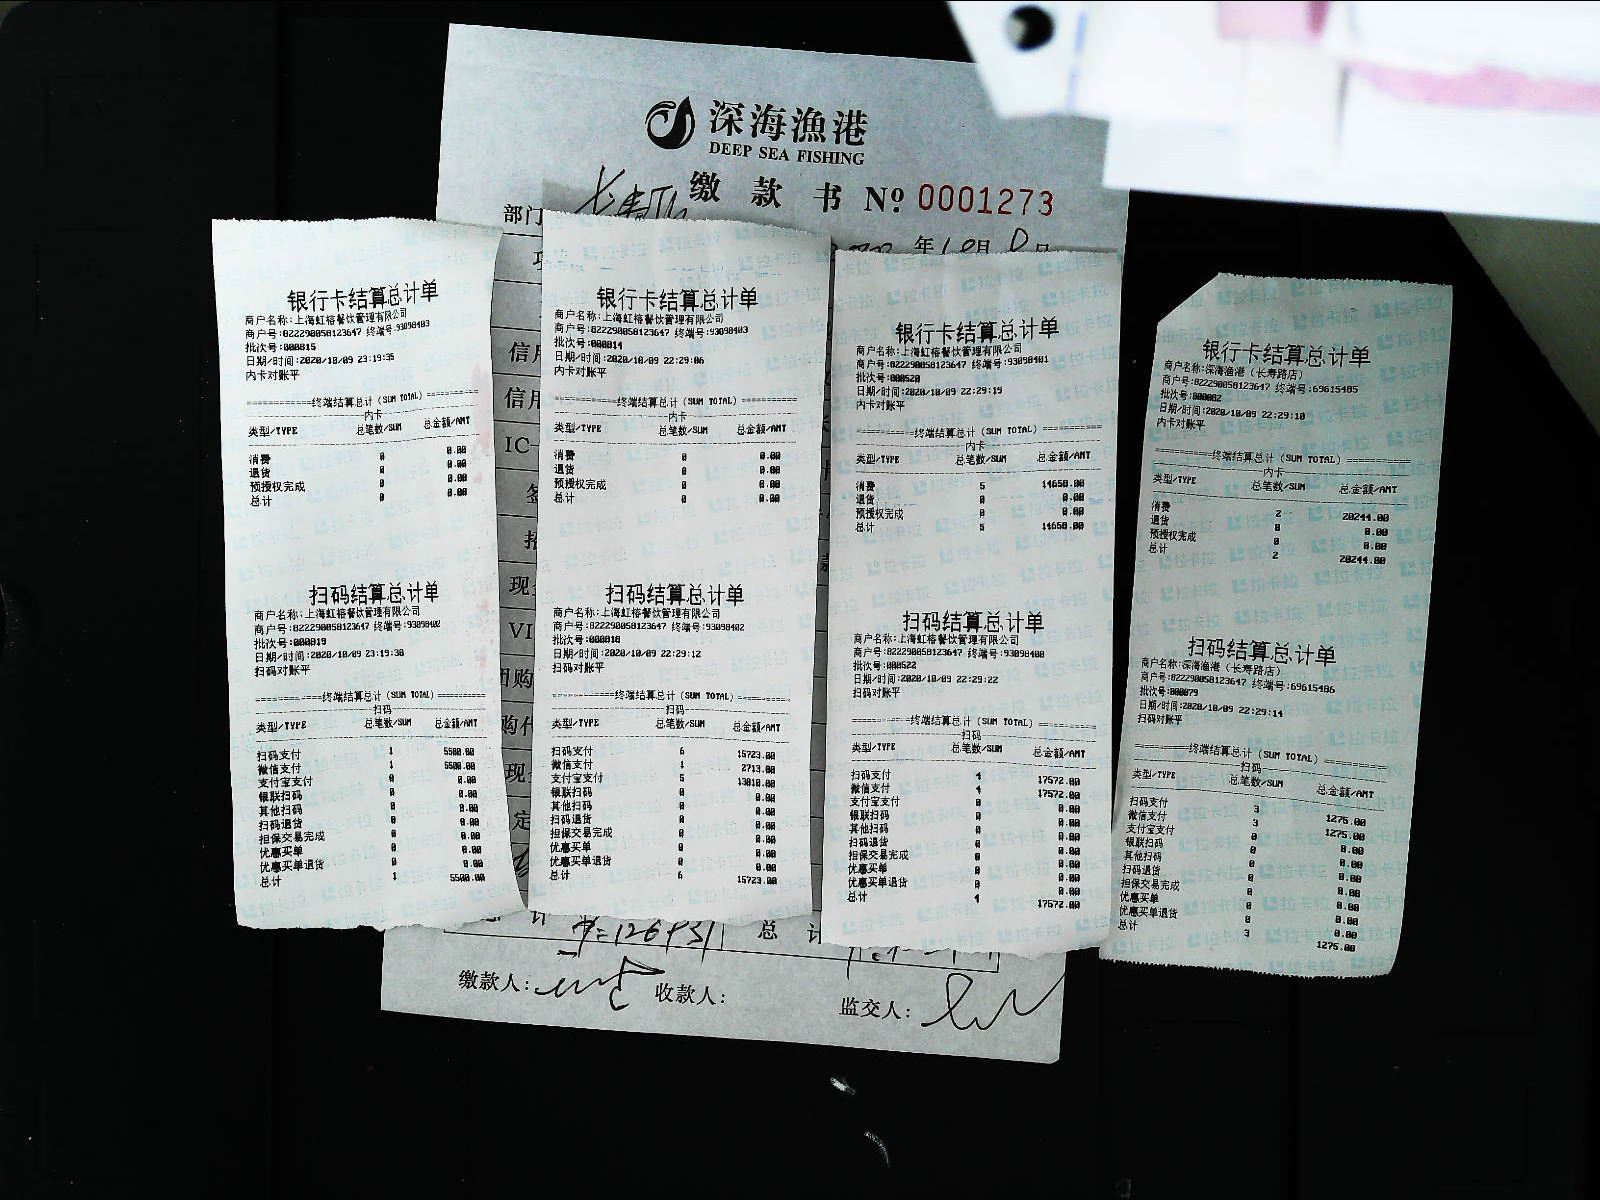 深海漁港
DEEP SEA FISHING
缴款书 Nº 0001273
部门
年10月
信用
信用
IC
现
VI
购
定
总 计
缴款人:
收款人:
监交人:
银行卡结算总计单
商户名称:上海虹榕餐饮管理有限公司
商户号:822290058123647 终端号:93098403
批次号:000815
日期/时间:2020/10/09 23:19:35
内卡对账平
============终端结算总计(SUM TOTAL)============
内卡
类型/TYPE 总笔数/SUM 总金额/AMT
消费 0 0.00
退货 0 0.00
预授权完成 0 0.00
总计 0 0.00
扫码结算总计单
商户名称:上海虹榕餐饮管理有限公司
商户号:822290058123647 终端号:93098402
批次号:000819
日期/时间:2020/10/09 23:19:38
扫码对账平
============终端结算总计(SUM TOTAL)============
扫码
类型/TYPE 总笔数/SUM 总金额/AMT
扫码支付 1 5500.00
微信支付 1 5500.00
支付宝支付 0 0.00
银联扫码 0 0.00
其他扫码 0 0.00
扫码退货 0 0.00
担保交易完成 0 0.00
优惠买单 0 0.00
优惠买单退货 0 0.00
总计 1 5500.00
银行卡结算总计单
商户名称:上海虹榕餐饮管理有限公司
商户号:822290058123647 终端号:93098403
批次号:000814
日期/时间:2020/10/09 22:29:06
内卡对账平
============终端结算总计(SUM TOTAL)============
内卡
类型/TYPE 总笔数/SUM 总金额/AMT
消费 0 0.00
退货 0 0.00
预授权完成 0 0.00
总计 0 0.00
扫码结算总计单
商户名称:上海虹榕餐饮管理有限公司
商户号:822290058123647 终端号:93098402
批次号:000818
日期/时间:2020/10/09 22:29:12
扫码对账平
============终端结算总计(SUM TOTAL)============
扫码
类型/TYPE 总笔数/SUM 总金额/AMT
扫码支付 6 15723.00
微信支付 1 2713.00
支付宝支付 5 13010.00
银联扫码 0 0.00
其他扫码 0 0.00
扫码退货 0 0.00
担保交易完成 0 0.00
优惠买单 0 0.00
优惠买单退货 0 0.00
总计 6 15723.00
银行卡结算总计单
商户名称:上海虹榕餐饮管理有限公司
商户号:822290058123647 终端号:93098401
批次号:000520
日期/时间:2020/10/09 22:29:19
内卡对账平
============终端结算总计(SUM TOTAL)============
内卡
类型/TYPE 总笔数/SUM 总金额/AMT
消费 5 14650.00
退货 0 0.00
预授权完成 0 0.00
总计 5 14650.00
扫码结算总计单
商户名称:上海虹榕餐饮管理有限公司
商户号:822290058123647 终端号:93098400
批次号:000522
日期/时间:2020/10/09 22:29:22
扫码对账平
============终端结算总计(SUM TOTAL)============
扫码
类型/TYPE 总笔数/SUM 总金额/AMT
扫码支付 4 17572.00
微信支付 4 17572.00
支付宝支付 0 0.00
银联扫码 0 0.00
其他扫码 0 0.00
扫码退货 0 0.00
担保交易完成 0 0.00
优惠买单 0 0.00
优惠买单退货 0 0.00
总计 4 17572.00
银行卡结算总计单
商户名称:深海渔港(长寿路店)
商户号:822290058123647 终端号:69615485
批次号:000082
日期/时间:2020/10/09 22:29:10
内卡对账平
============终端结算总计(SUM TOTAL)============
内卡
类型/TYPE 总笔数/SUM 总金额/AMT
消费 2 20244.00
退货 0 0.00
预授权完成 0 0.00
总计 2 20244.00
扫码结算总计单
商户名称:深海渔港(长寿路店)
商户号:822290058123647 终端号:69615486
批次号:000079
日期/时间:2020/10/09 22:29:14
扫码对账平
============终端结算总计(SUM TOTAL)============
扫码
类型/TYPE 总笔数/SUM 总金额/AMT
扫码支付 3 1275.00
微信支付 3 1275.00
支付宝支付 0 0.00
银联扫码 0 0.00
其他扫码 0 0.00
扫码退货 0 0.00
担保交易完成 0 0.00
优惠买单 0 0.00
优惠买单退货 0 0.00
总计 3 1275.00